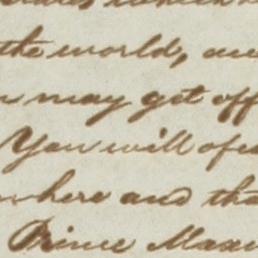 the world, and
may get off
You will of
where and tha
Prince Maxi